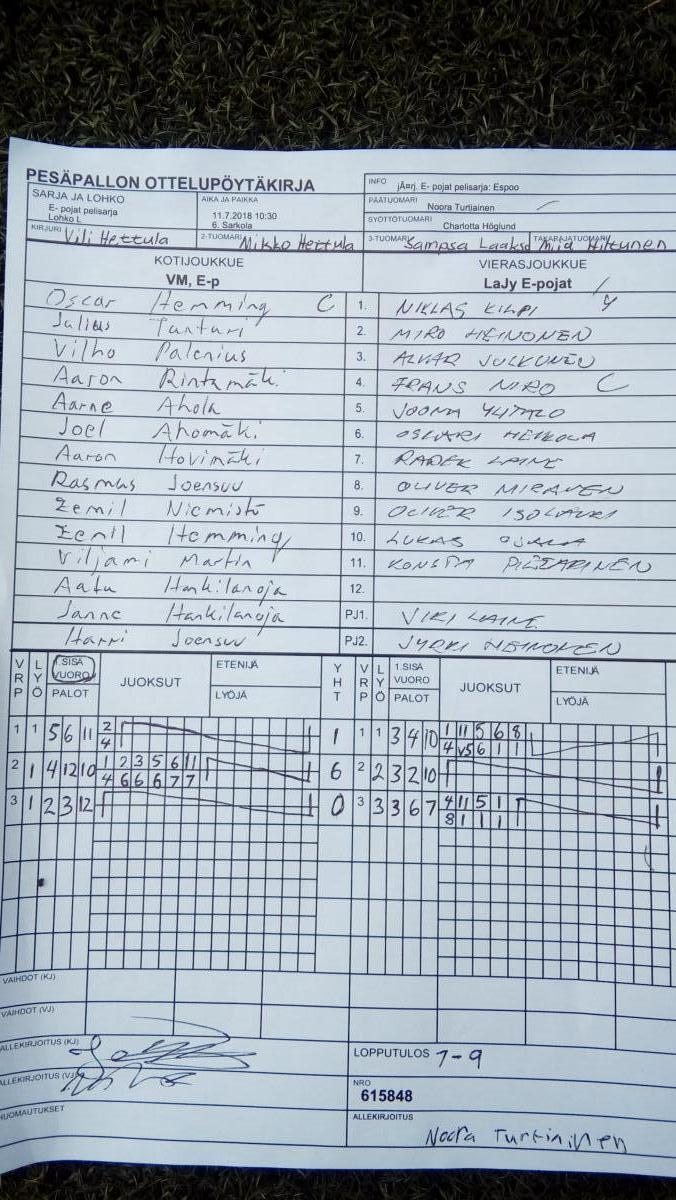 PESÄPALLON OTTELUPÖYTÄKIRJA
INFO jÄ¤rj. E- pojat pelisarja: Espoo
SARJA JA LOHKO
E- pojat pelisarja
Lohko L
AIKA JA PAIKKA
11.7.2018 10:30
6. Sarkola
PÄÄTUOMARI
Noora Turtiainen
SYÖTTÖTUOMARI
Charlotta Höglund
KIRJURI Vili Hettula
2-TUOMARI Mikko Hettula
3-TUOMARI Sampsa Laakso
TAKARAJATUOMARI Hiltunen
KOTIJOUKKUE
VM, E-p
VIERASJOUKKUE
LaJy E-pojat
Oscar Hemming C 1. NIKLAS KILPI
Julius Tunturi 2. MIRO HEINONEN
Vilho Palenius 3. ALVAR JULKUNEN
Aaron Rintamäki 4. FRANS NIRO C
Aarne Ahola 5. JOONA YLITALO
Joel Ahomäki 6. OSKARI HEIKOLA
Aaron Hovimäki 7. RADEK LAINE
Rasmus Joensuu 8. OLIVER MIRANEN
Eemil Niemistö 9. OLIVER ISOLAURI
Eemil Hemming 10. LUKAS OJALA
Viljami Martin 11. KONSTA PIETARINEN
Aatu Hankilanoja 12.
Janne Hankilanoja PJ1. VIKI LAINE
Harri Joensuu PJ2. JYRKI HEINONEN
VRP LYÖ 1.SISÄ VUORO PALOT JUOKSUT ETENIJÄ LYÖJÄ YHT VRP LYÖ 1.SISÄ VUORO PALOT JUOKSUT ETENIJÄ LYÖJÄ
1 1 5 6 11 2 1 1 1 3 4 10 1 11 5 6 8
4 4 v5 6 1 1
2 1 4 12 10 1 2 3 5 6 11 6 2 2 3 2 10
4 6 6 6 7 7
3 1 2 3 12 0 3 3 3 6 7 4 11 5 1
8 1 1 1
VAIHDOT (KJ)
VAIHDOT (VJ)
ALLEKIRJOITUS (KJ)
LOPPUTULOS 7-9
ALLEKIRJOITUS (VJ)
NRO
615848
HUOMAUTUKSET
ALLEKIRJOITUS
Noora Turtiainen